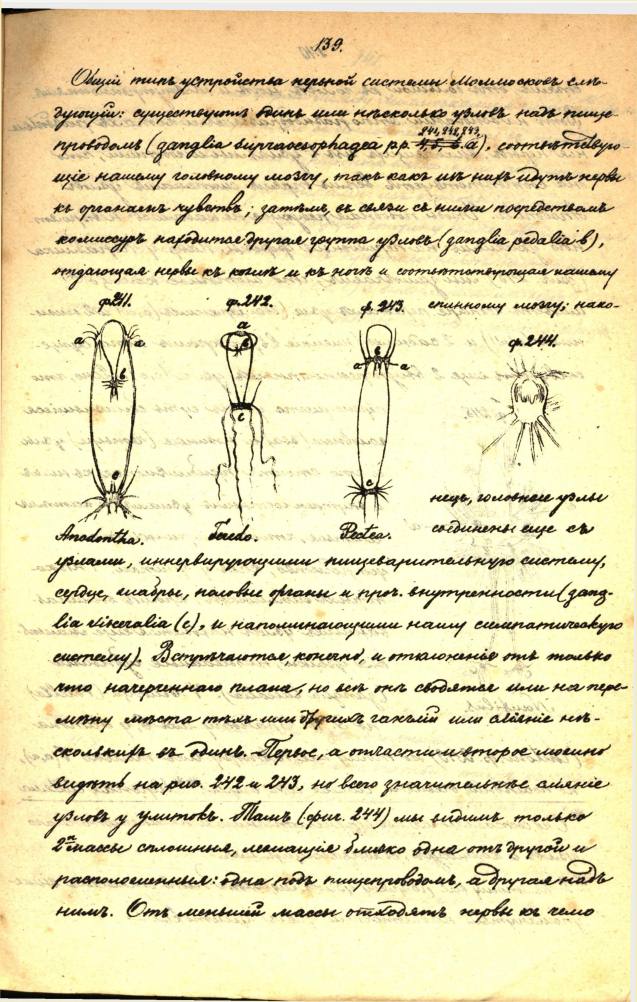 139.
Общій типъ устройства нервной системы Моллюсковъ слѣ-
дующій: существуютъ одинъ или нѣсколько узловъ надъ пище
241, 242, 243.
проводомъ (ganglia supraoesophagea рр. a), соотвѣтствую-
щіе нашему головному мозгу, такъ какъ изъ нихъ идутъ нервы
къ органамъ чувствъ; затѣмъ, въ связи съ ними посредствомъ
комиссуръ находится другая группа узловъ (ganglia pedalia b),
отдающая нервы къ кожѣ и къ ногѣ и соотвѣтствующая нашему
ф. 241. ф. 242. ф. 243. спинному мозгу; нако-
ф. 244.
a a b c
a b c
a b a c
нецъ, головные узлы
Anodontha. Teredo. Pectea. соединены еще съ
узлами, иннервирующими пищеварительную систему,
сердце, жабры, половые органы и проч. внутренности (gang-
lia visceralia (c), и напоминающими нашу симпатическую
систему). Встрѣчаются, конечно, и отклоненія отъ только
что начерченнаго плана, но всѣ онѣ сводятся или на пере-
мѣну мѣста тѣхъ или другихъ ганглій или сліяніе нѣ-
сколькихъ въ одинъ. Первое, а отчасти и второе можно
видѣть на рис. 242 и 243, но всего значительнѣе сліяніе
узловъ у улитокъ. Тамъ (фиг. 244) мы видимъ только
2 массы сплошныя, лежащіе близко одна отъ другой и
расположенныя: одна подъ пищепроводомъ, а другая надъ
нимъ. Отъ меньшей массы отходятъ нервы къ чему